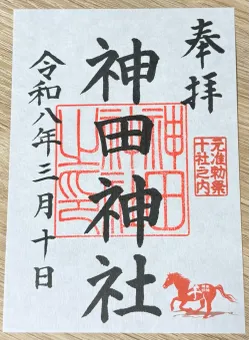 奉拝
元准勅祭
十社之内
神田神社
令和八年三月十日